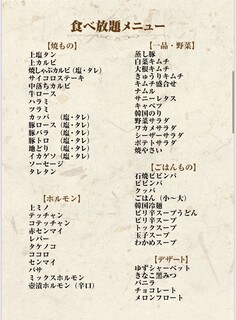 食べ放題メニュー
【焼もの】
上塩タン
上カルビ
焼しゃぶカルビ（塩・タレ）
サイコロステーキ
中落ちカルビ
牛ロース
ハラミ
ツラミ
カッパ （塩・タレ）
豚ロース（塩・タレ）
豚バラ （塩・タレ）
豚トロ （塩・タレ）
地どり （塩・タレ）
イカゲソ（塩・タレ）
ソーセージ
タレタン
【ホルモン】
上ミノ
テッチャン
コテッチャン
赤センマイ
レバー
タケノコ
ココロ
センマイ
バサ
ミックスホルモン
壺漬ホルモン（辛口）
【一品・野菜】
蒸し豚
白菜キムチ
大根キムチ
きゅうりキムチ
キムチ盛合せ
ナムル
サニーレタス
キャベツ
韓国のり
野菜サラダ
ワカメサラダ
シーザーサラダ
ポテトサラダ
焼やさい
【ごはんもの】
石焼ビビンバ
ビビンバ
クッパ
ごはん（小～大）
韓国冷麺
ピリ辛スープうどん
ピリ辛スープ
トックスープ
玉子スープ
わかめスープ
【デザート】
ゆずシャーベット
きなこ黒みつ
バニラ
チョコレート
メロンフロート